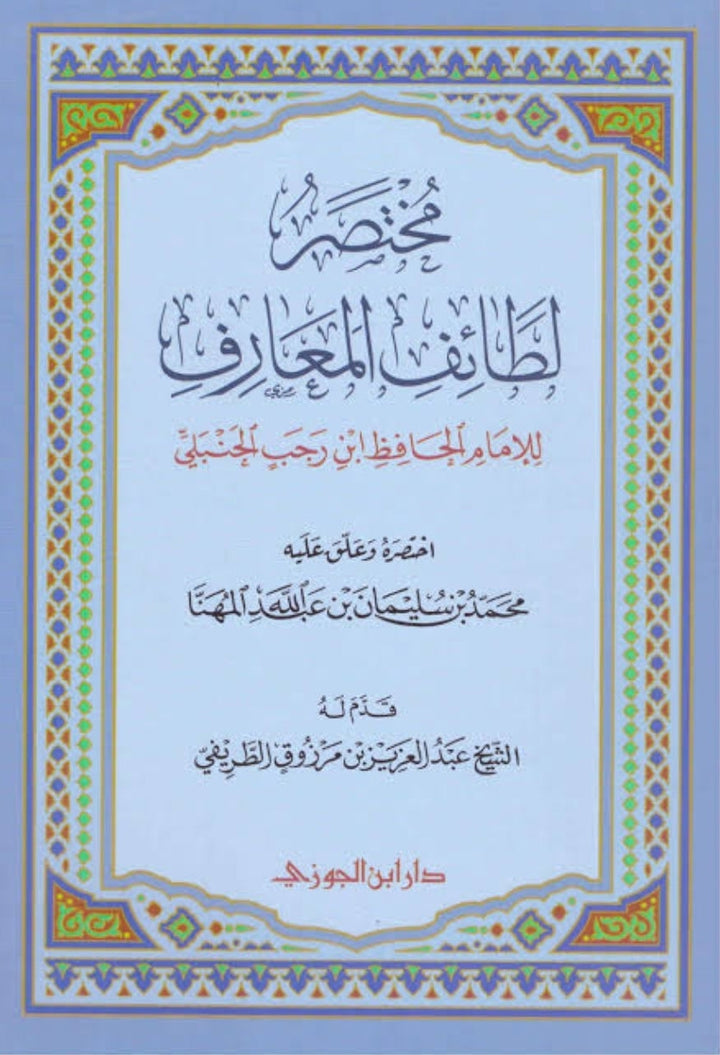 مُختَصَرُ
لَطَائِفِ المَعَارِفِ
لِلإمَامِ الحَافِظِ ابْنِ رَجَبٍ الحَنْبَلِيِّ
اختَصَرَهُ وَعَلَّقَ عَلَيه
محَمَّدُ بْنُ سُلَيْمَان بْن عَبْدِ اللَّهِ المُهَنَّا
قَدَّمَ لَهُ
الشَّيْخ عَبْدُ العَزِيْز بْن مَرْزُوْقٍ الطَّرِيْفِيّ
دار ابن الجوزي